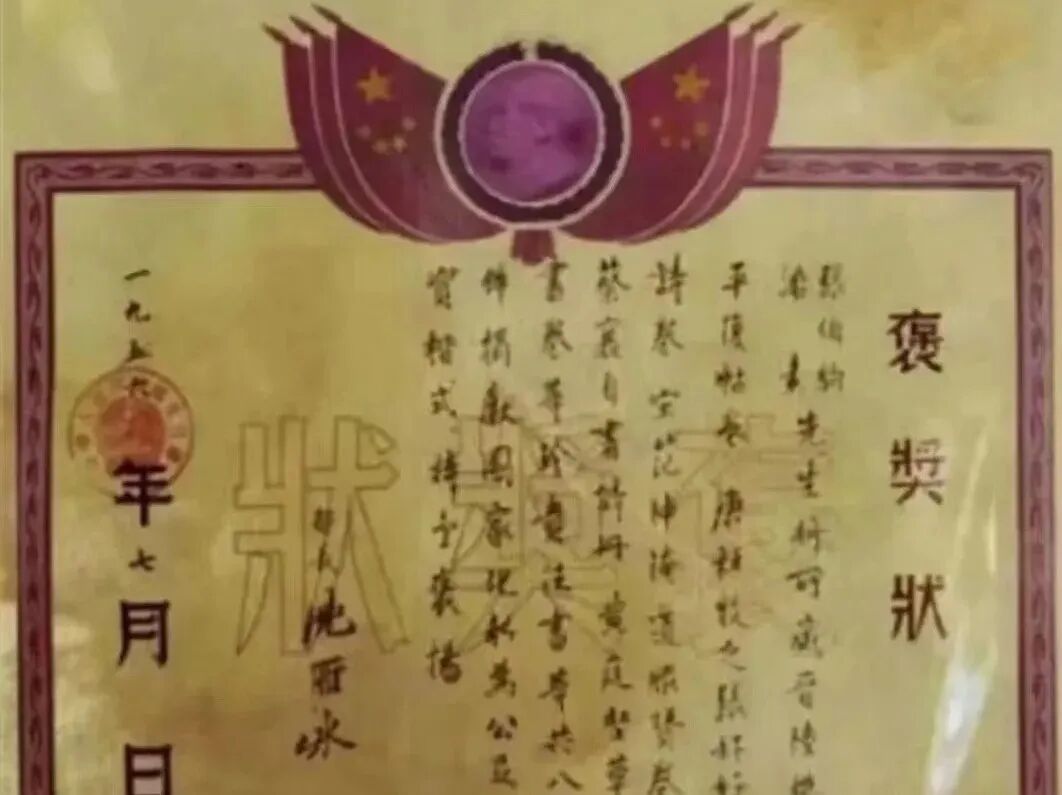 褒獎狀
張伯駒
潘素先生將所藏晉陸機
平復帖卷唐杜牧之張好好
詩卷宋范仲淹道服贊卷
蔡襄自書詩册黄庭堅草
書卷等珍貴法書等共八
件捐獻國家化私為公足
資楷式特予褒揚
部長沈雁冰
一九五六年七月 日
褒獎狀